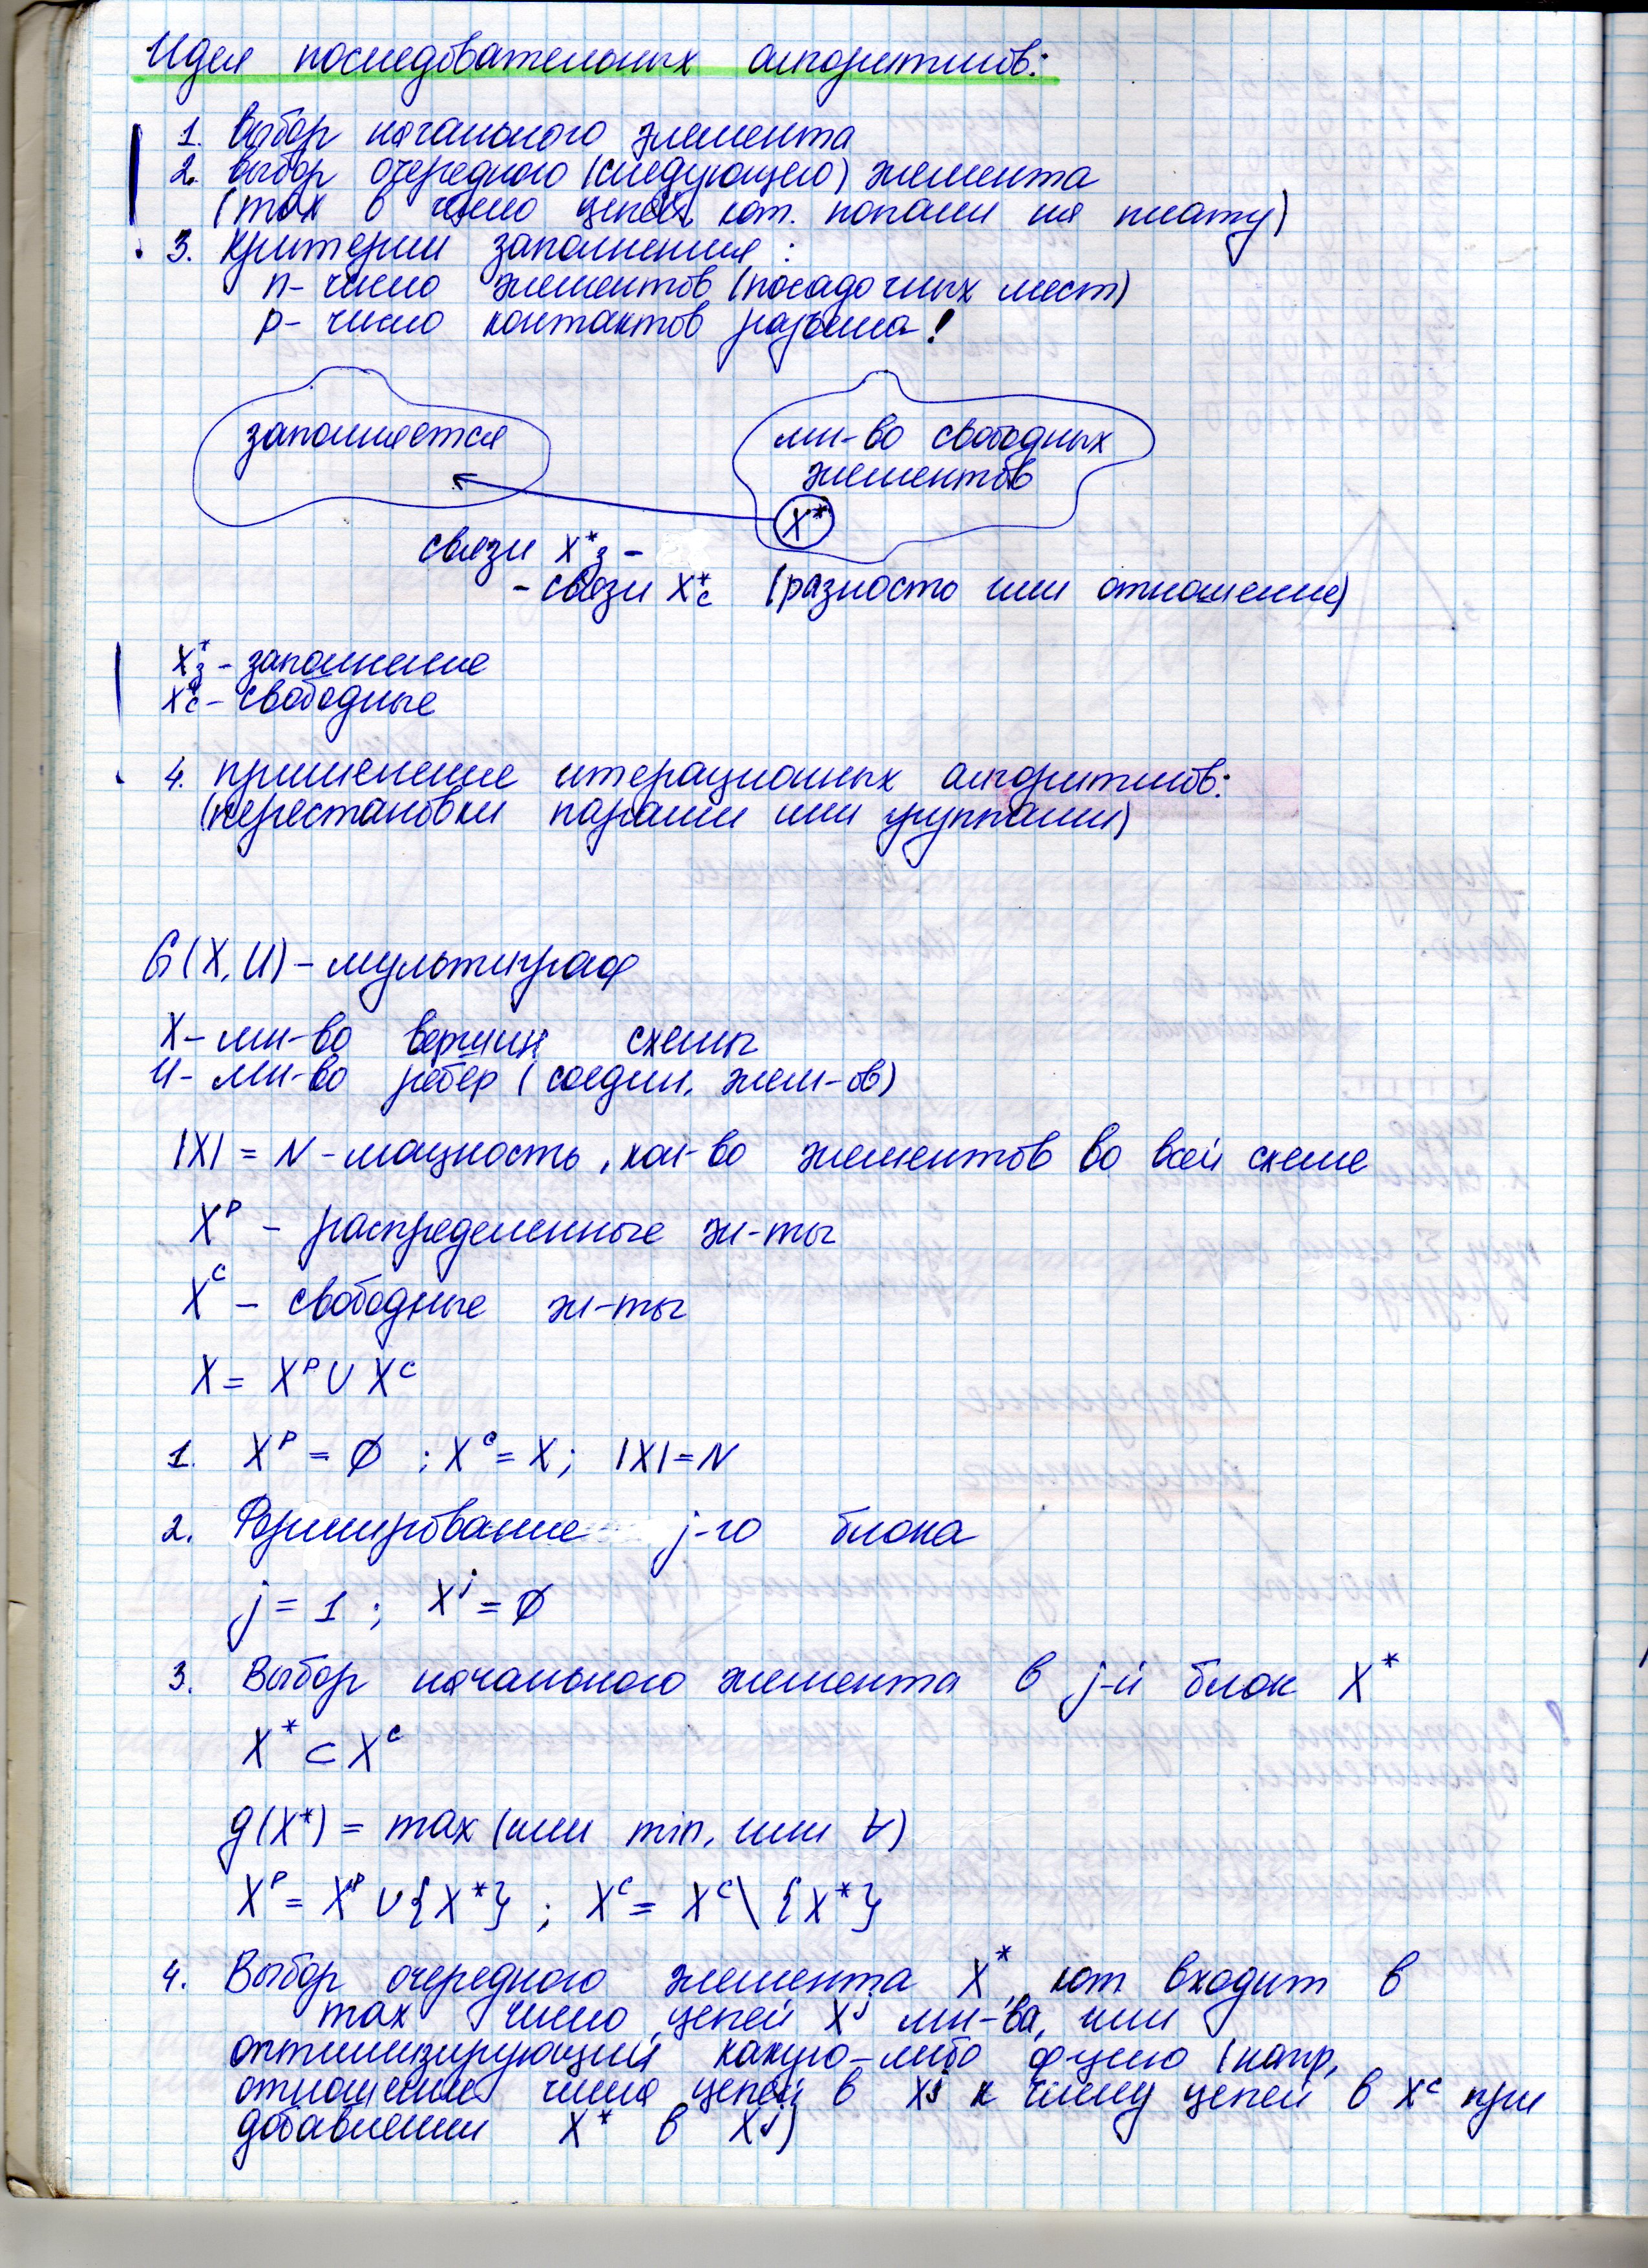 Идея последовательных алгоритмов:
1. Выбор начального элемента
2. выбор очередного (следующего) элемента
(max в число цепей, кот. попали на плату)
3. критерии заполнения:
n- число элементов (посадочных мест)
p- число контактов разъема!
заполняется
мн-во свободных
элементов
X*
связи X*з -
- связи X*с (разность или отношение)
X*з - заполнение
X*с - свободные
4. применение итерационных алгоритмов:
(перестановки парами или группами)
G(X, U) - мультиграф
X- мн-во вершин схемы
U- мн-во ребер (соедин. элем-ов)
|X| = N - мощность, кол-во элементов во всей схеме
X^P - распределенные эл-ты
X^C - свободные эл-ты
X = X^P ∪ X^C
1. X^P = ∅ ; X^C = X; |X| = N
2. Формирование j-го блока
j = 1 ; X^j = ∅
3. Выбор начального элемента в j-й блок X*
X* ⊂ X^C
g(X*) = max (или min, или ∀)
X^P = X^P ∪ {X*} ; X^C = X^C \ {X*}
4. Выбор очередного элемента X*, кот. входит в
max число цепей X^j мн-ва, или
оптимизирующий какую-либо ф-цию (напр,
отношение числа цепей в Xj к числу цепей в X^C при
добавлении X* в Xj)